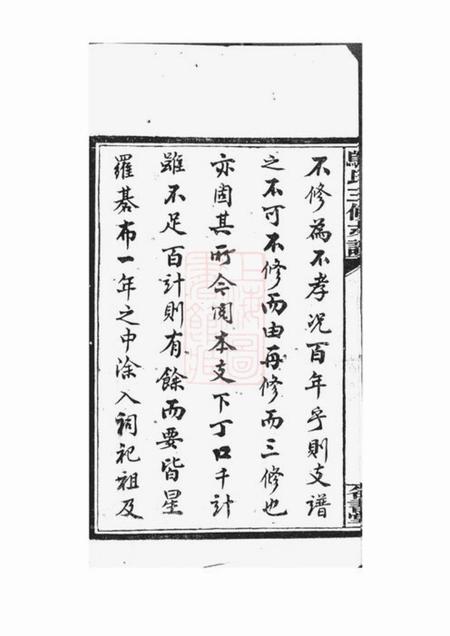 不修為不孝況百年乎則支譜
之不可不修而由再修而三修也
亦固其所今閱本支下丁口千計
雖不足百計則有餘而要皆星
羅碁布一年之中除入祠祀祖及
氏三修支譜